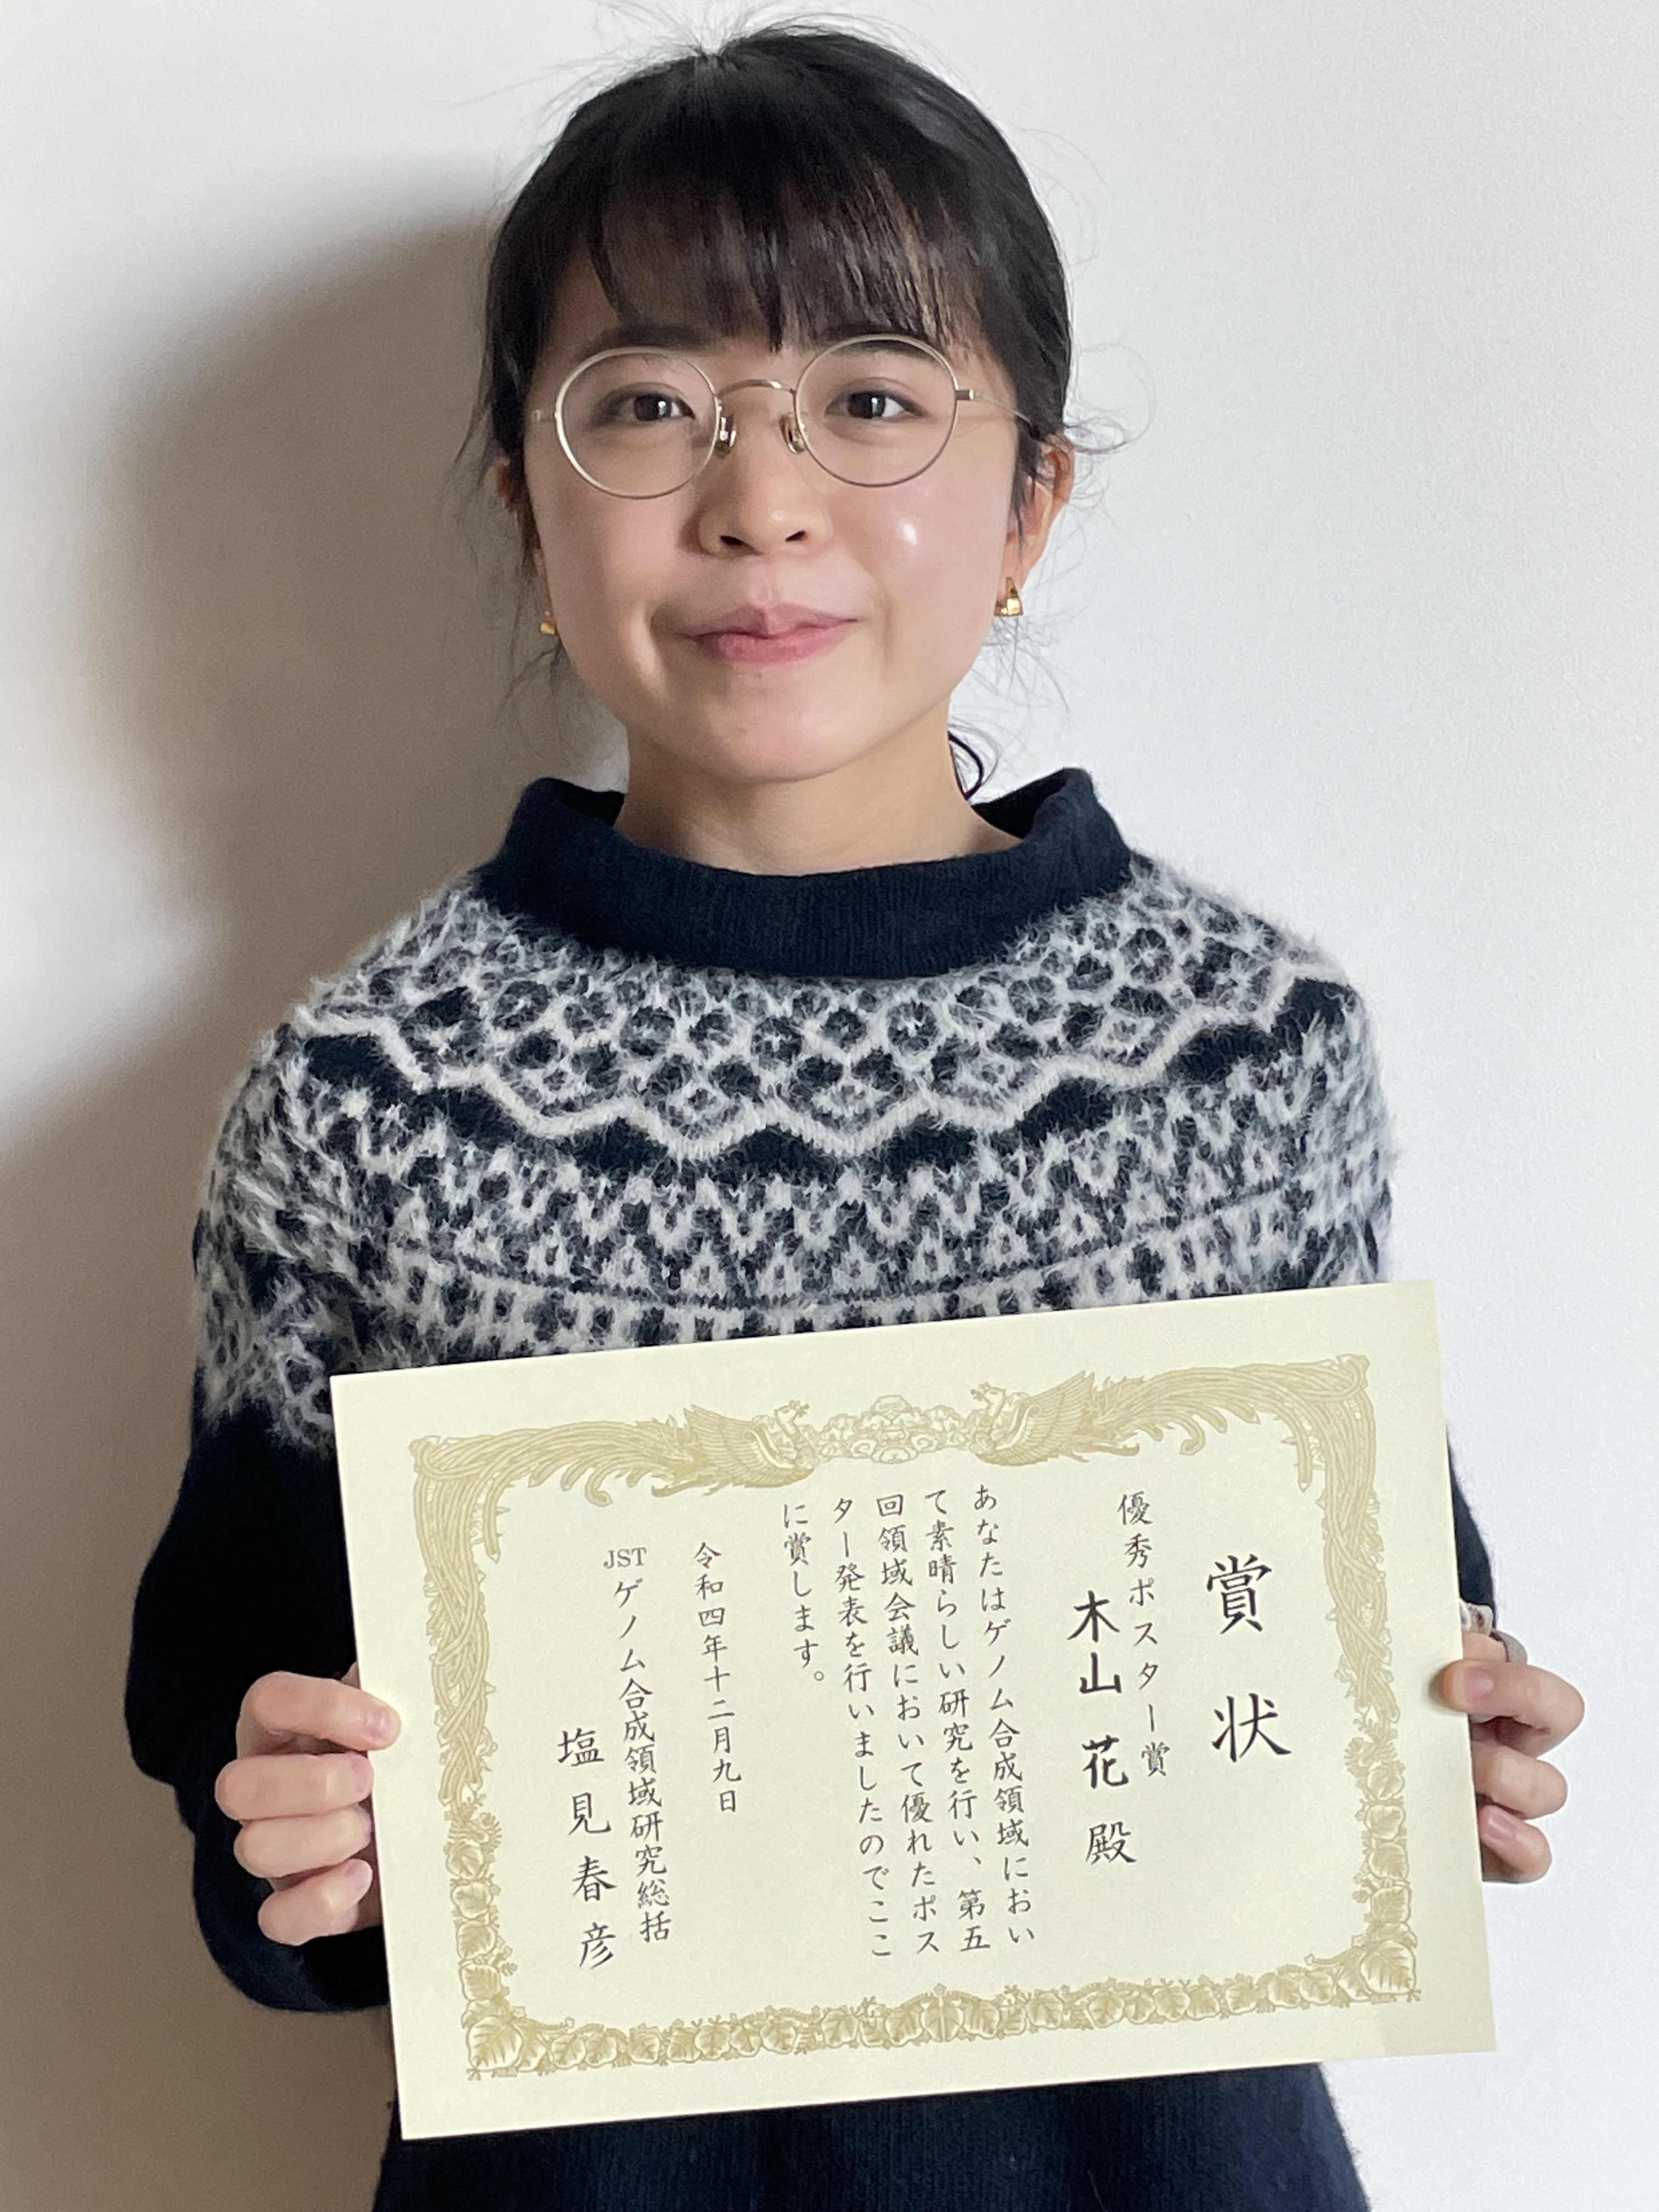 賞状
優秀ポスター賞
木山 花 殿
あなたはゲノム合成領域におい
て素晴らしい研究を行い、第五
回領域会議において優れたポス
ター発表を行いましたのでここ
に賞します。
令和四年十二月九日
JSTゲノム合成領域研究総括
塩見春彦